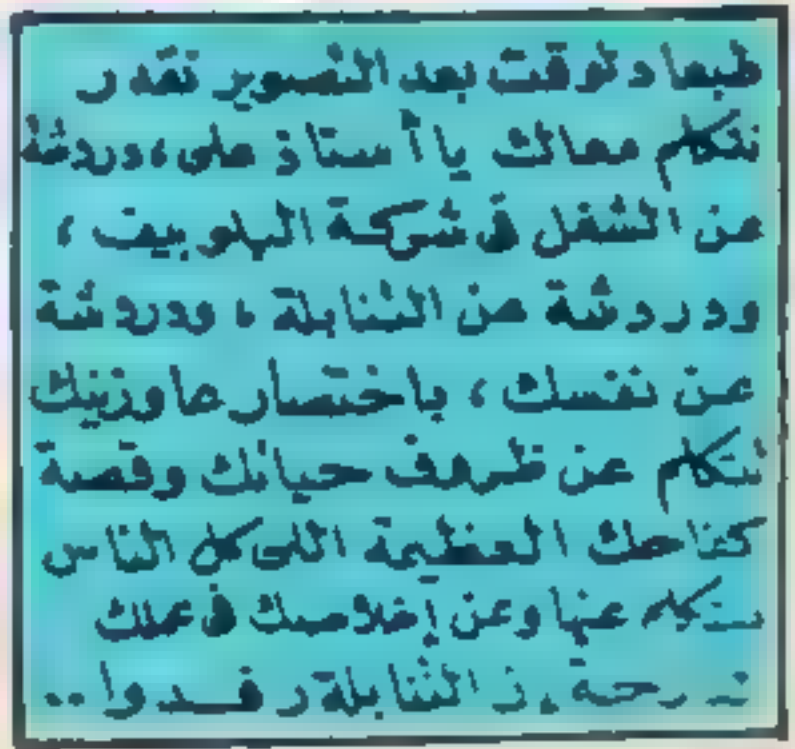 طبعا دلوقت بعد التصوير نقدر
نتكلم معاك يا أستاذ على، دردشة
عن الشغل فى شركة البلوبيف،
ودردشة عن التنابلة، ودردشة
عن نفسك، باختصار عاوزينك
تتكلم عن ظروف حياتك وقصة
كفاحك العظيمة اللى كل الناس
بتتكلم عنها وعن إخلاصك فى عملك
التنابلة رفدوا..